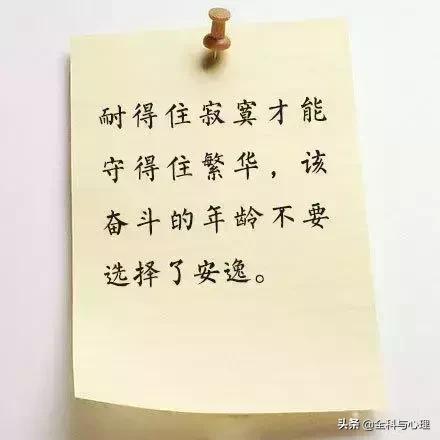 耐得住寂寞才能
守得住繁华，该
奋斗的年龄不要
选择了安逸。
头条 @全科与心理